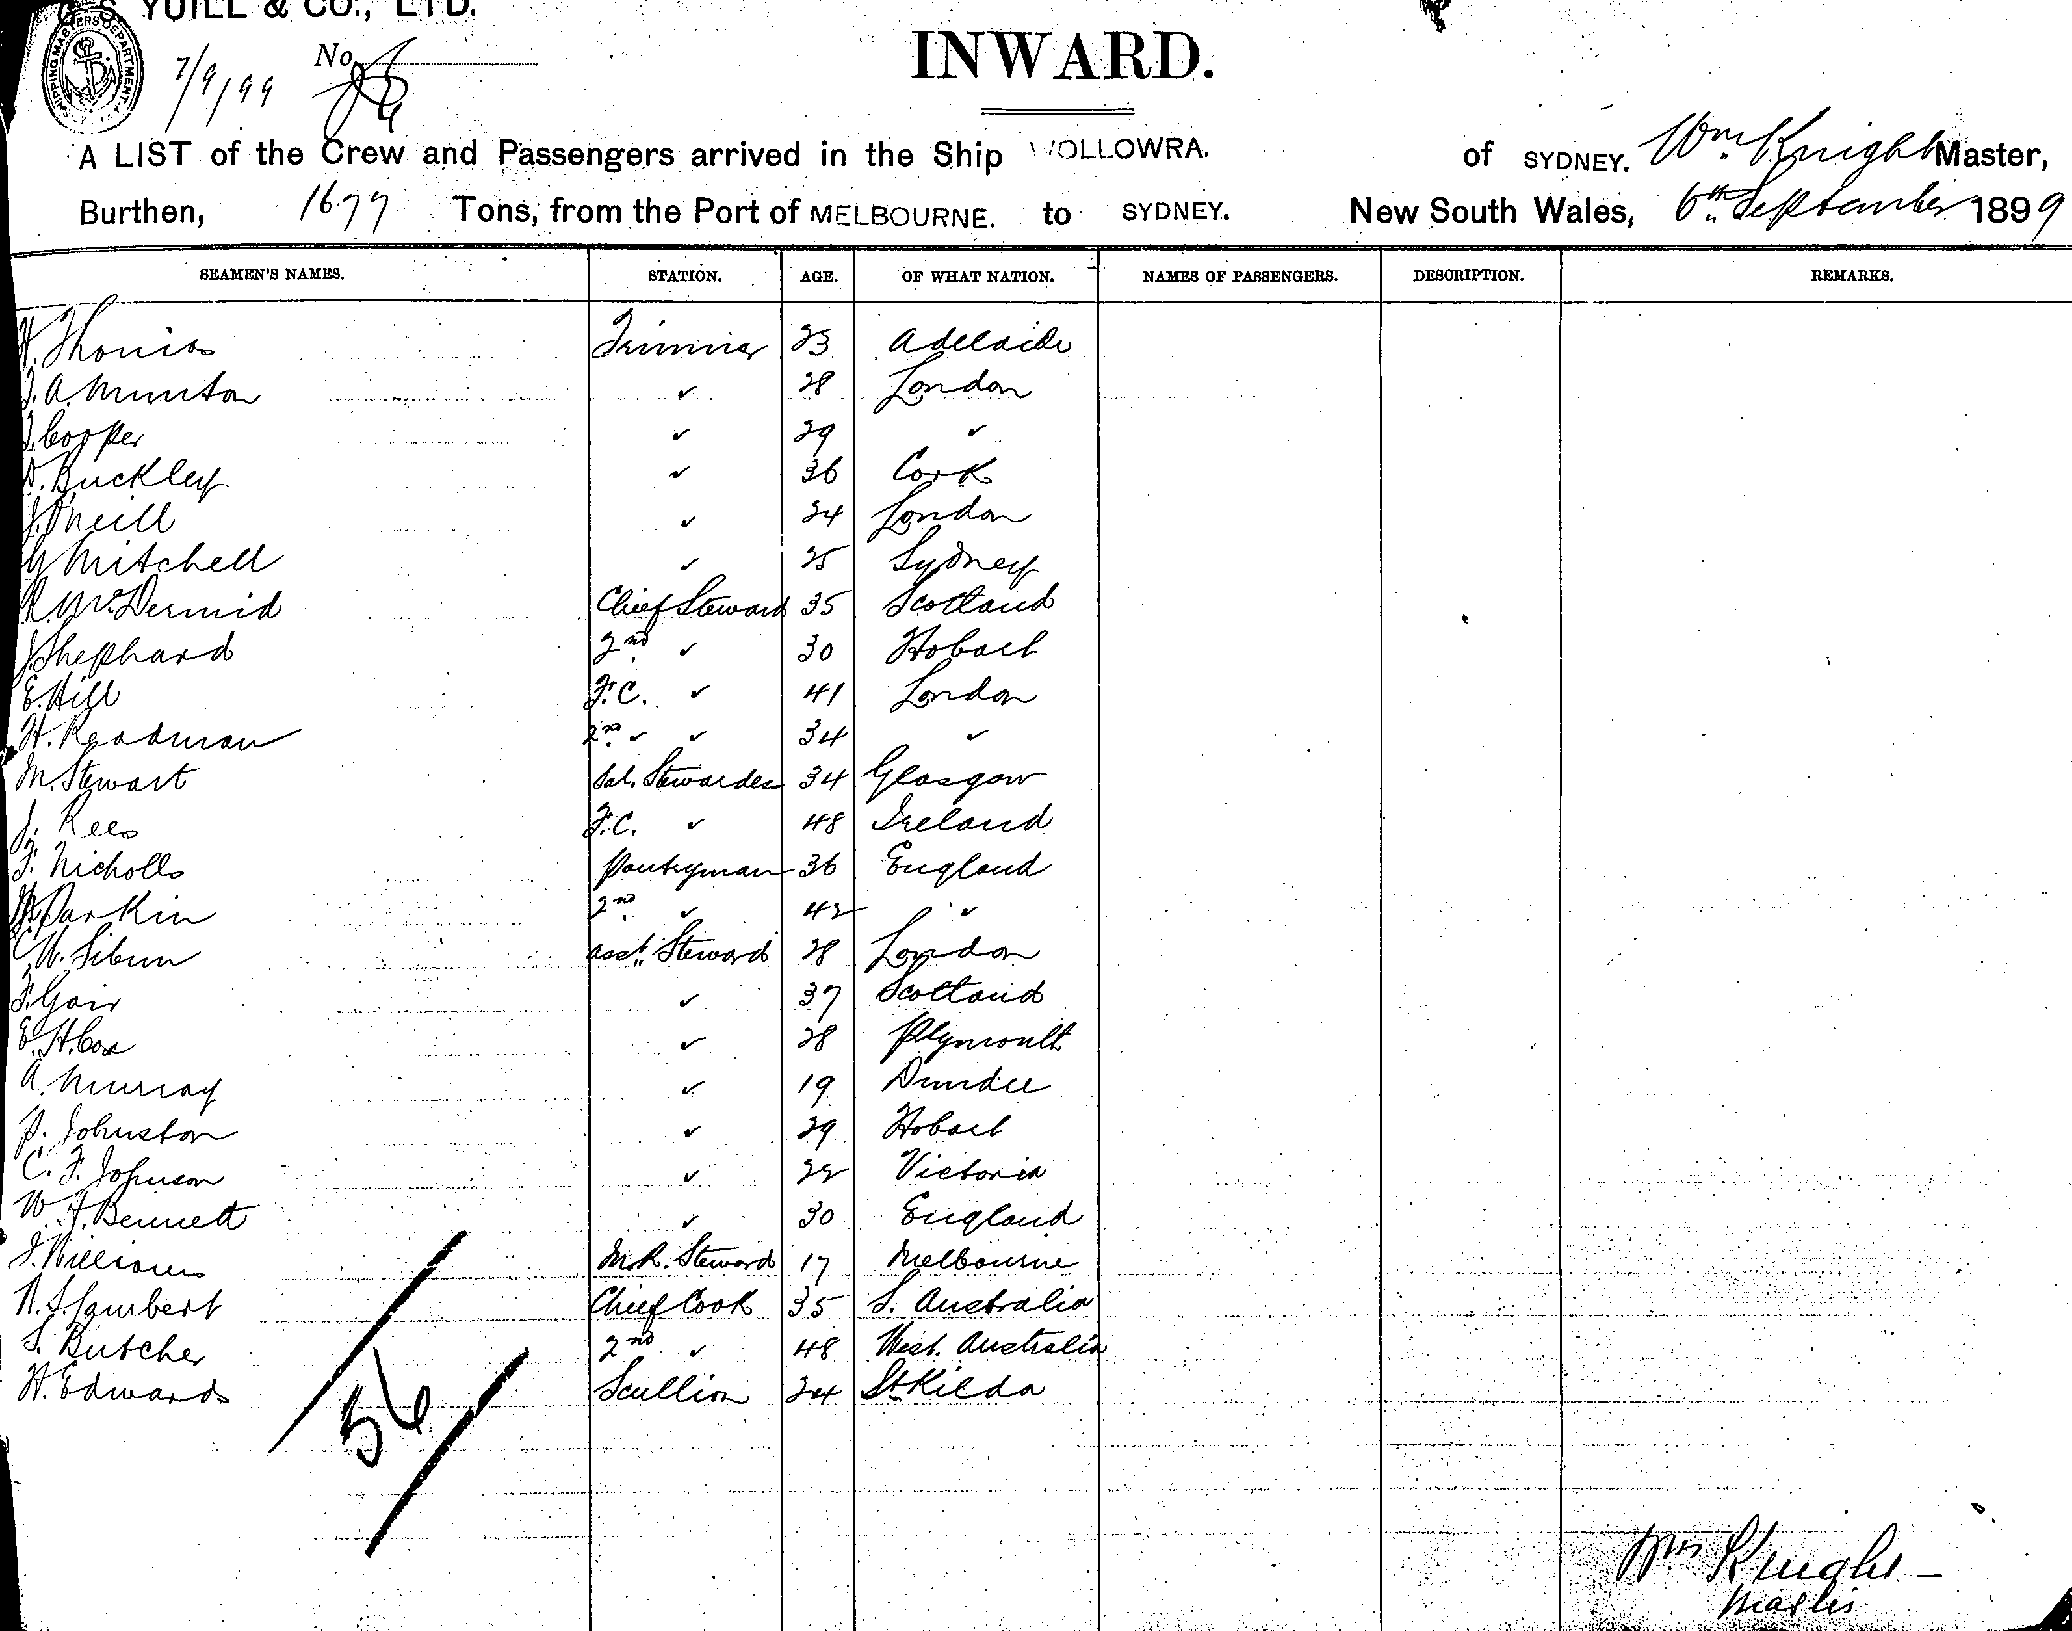 YUILL & CO., LTD.
SHIPPING MASTERS DEPARTMENT
7/9/99 No
INWARD.
A LIST of the Crew and Passengers arrived in the Ship WOLLOWRA. of SYDNEY. Wm Knight Master,
Burthen, 1677 Tons, from the Port of MELBOURNE. to SYDNEY. New South Wales, 6th September 1899
SEAMEN'S NAMES. STATION. AGE. OF WHAT NATION. NAMES OF PASSENGERS. DESCRIPTION. REMARKS.
Thomas Trimmer 23 Adelaide
J. A. Munton ✓ 28 London
J. Cooper ✓ 29 ✓
D. Buckley ✓ 36 Cork
J. O'Neill ✓ 24 London
G Mitchell ✓ 25 Sydney
R. McDermid Chief Steward 35 Scotland
J Shephard 2nd ✓ 30 Hobart
E. Hill F.C. ✓ 41 London
H. Readman 2nd ✓ ✓ 34 ✓
M. Stewart Sal. Stewardess 34 Glasgow
J. Rees F.C. ✓ 48 Ireland
F. Nicholls Pantryman 36 England
Parkin 2nd ✓ 42 ✓
W. Sibun Asst. Steward 28 London
F. Gair ✓ 37 Scotland
E. H. Cox ✓ 28 Plymouth
A. Murray ✓ 19 Dundee
P. Johnston ✓ 29 Hobart
C. F. Johnson ✓ 22 Victoria
W. F. Bennett ✓ 30 England
J. Williams M.R. Steward 17 Melbourne
Lambert Chief Cook 35 S. Australia
S. Butcher 2nd ✓ 48 West. Australia
H. Edwards Scullion 24 St Kilda
56
Wm Knight
Master